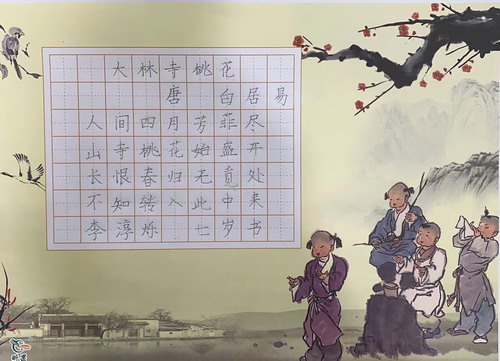 大林寺桃花
唐 白居易
人间四月芳菲尽
山寺桃花始盛开
长恨春归无竟处
不知转入此中来
李淳烁 七岁书